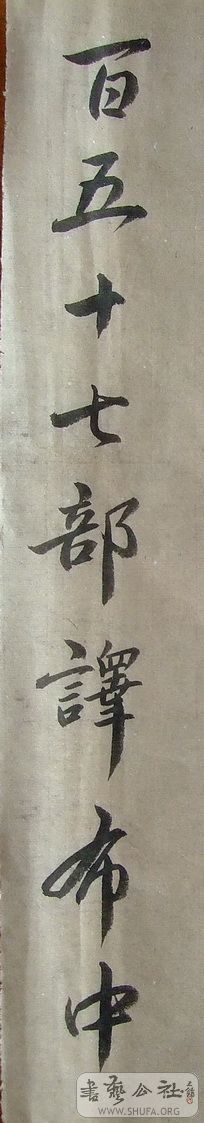 百五十七部譯布中
書藝公社
WWW.SHUFA.ORG